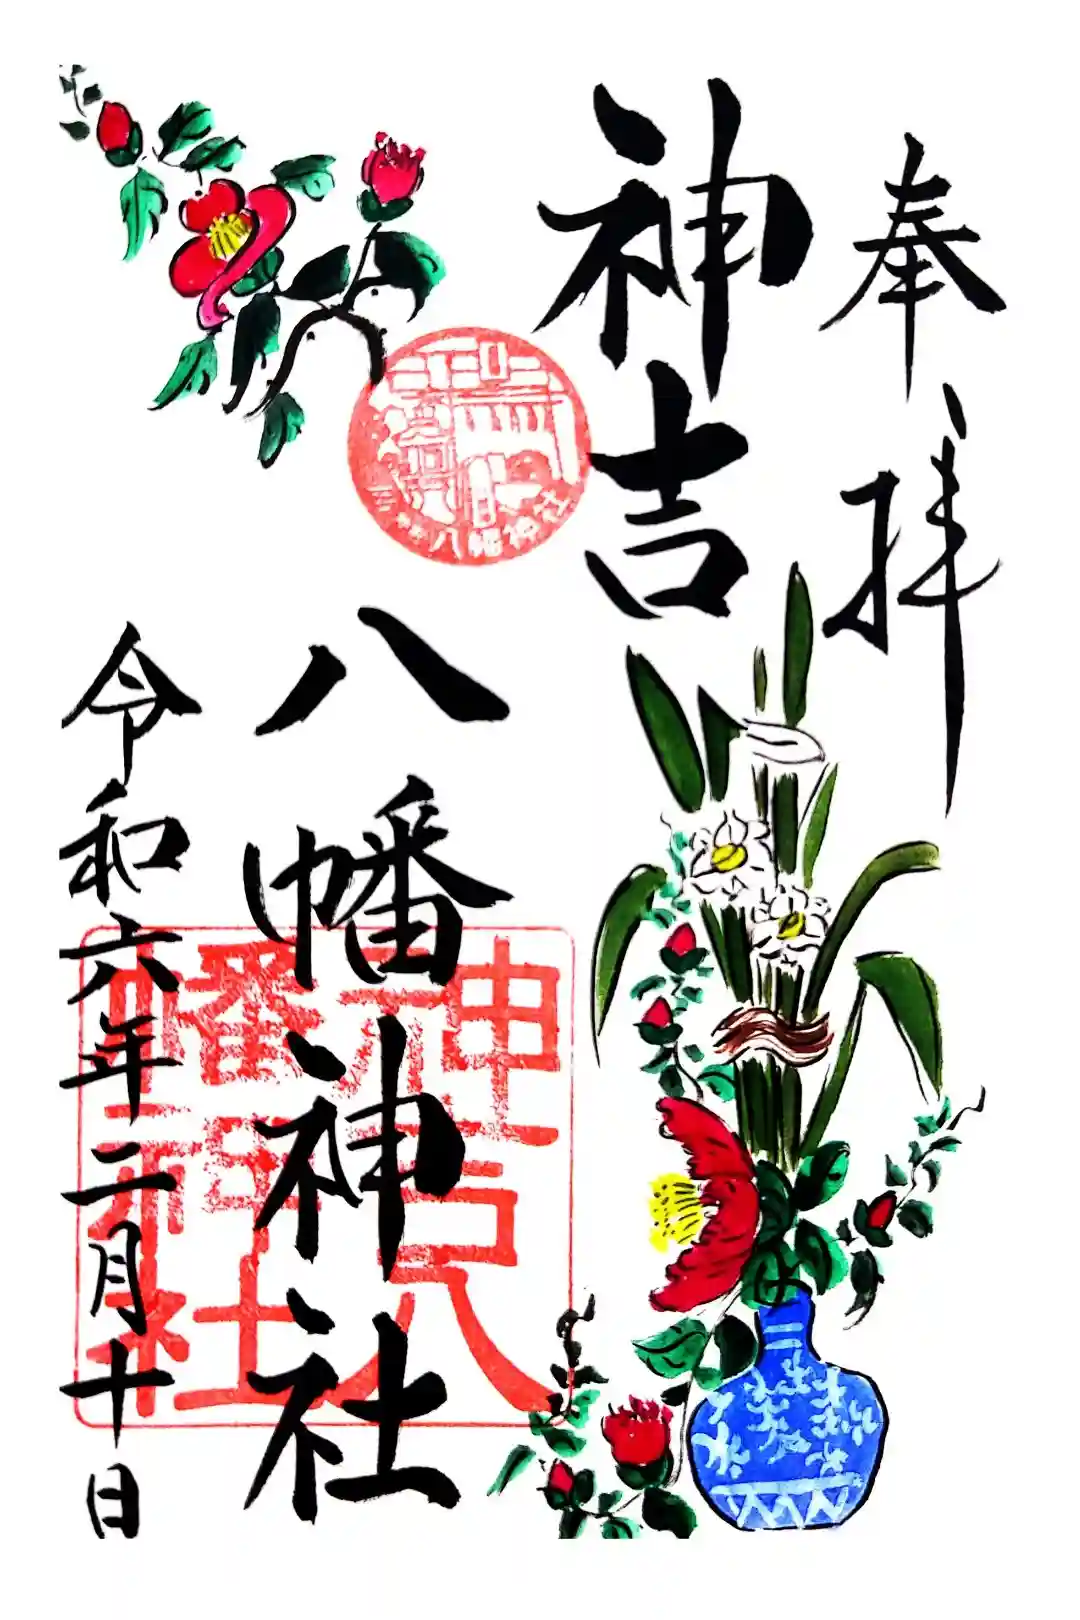 奉拝
神吉
八幡神社
令和六年二月十日
八幡神社
神吉八幡神社